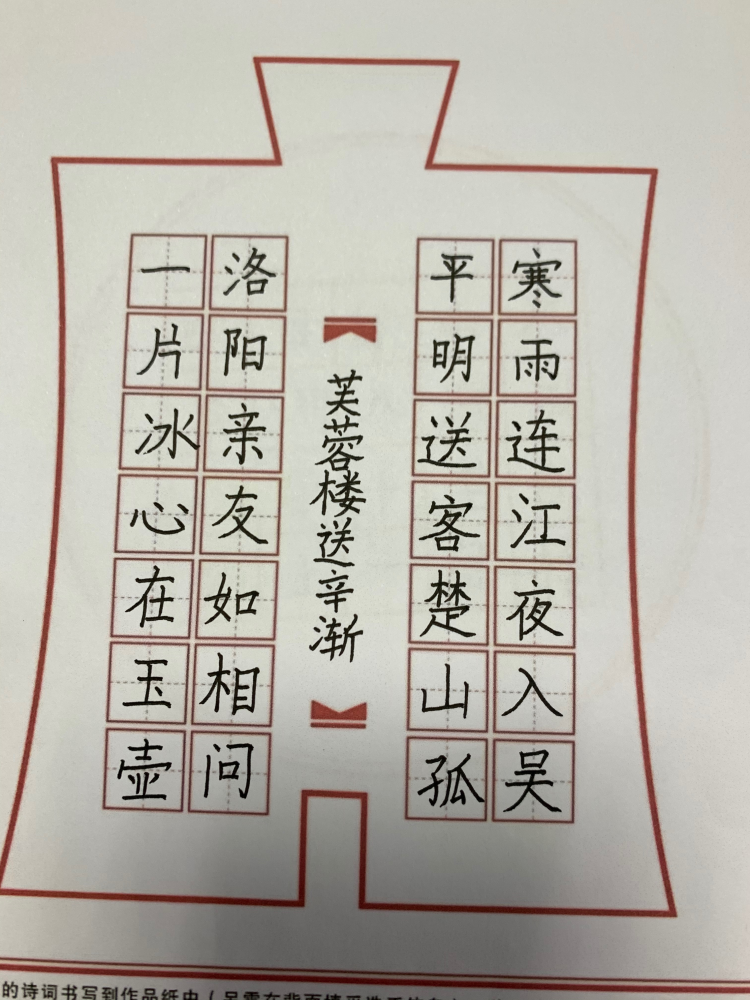 寒雨连江夜入吴
平明送客楚山孤
芙蓉楼送辛渐
洛阳亲友如相问
一片冰心在玉壶
的诗词书写到作品纸中